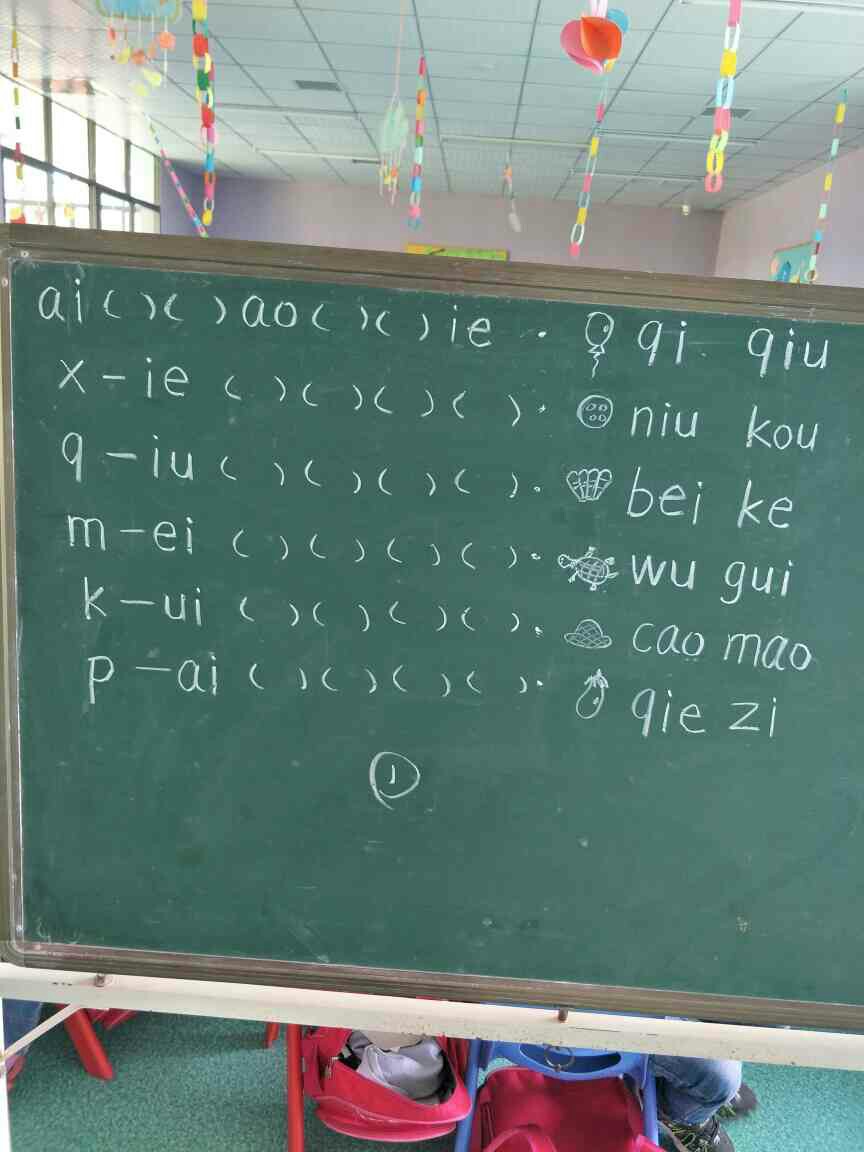 ai ( ) ( ) ao ( ) ( ) ie · qi qiu
x - ie ( ) ( ) ( ) ( ) · niu kou
q - iu ( ) ( ) ( ) ( ) · bei ke
m - ei ( ) ( ) ( ) ( ) · wu gui
k - ui ( ) ( ) ( ) ( ) · cao mao
p - ai ( ) ( ) ( ) ( ) · qie zi
①